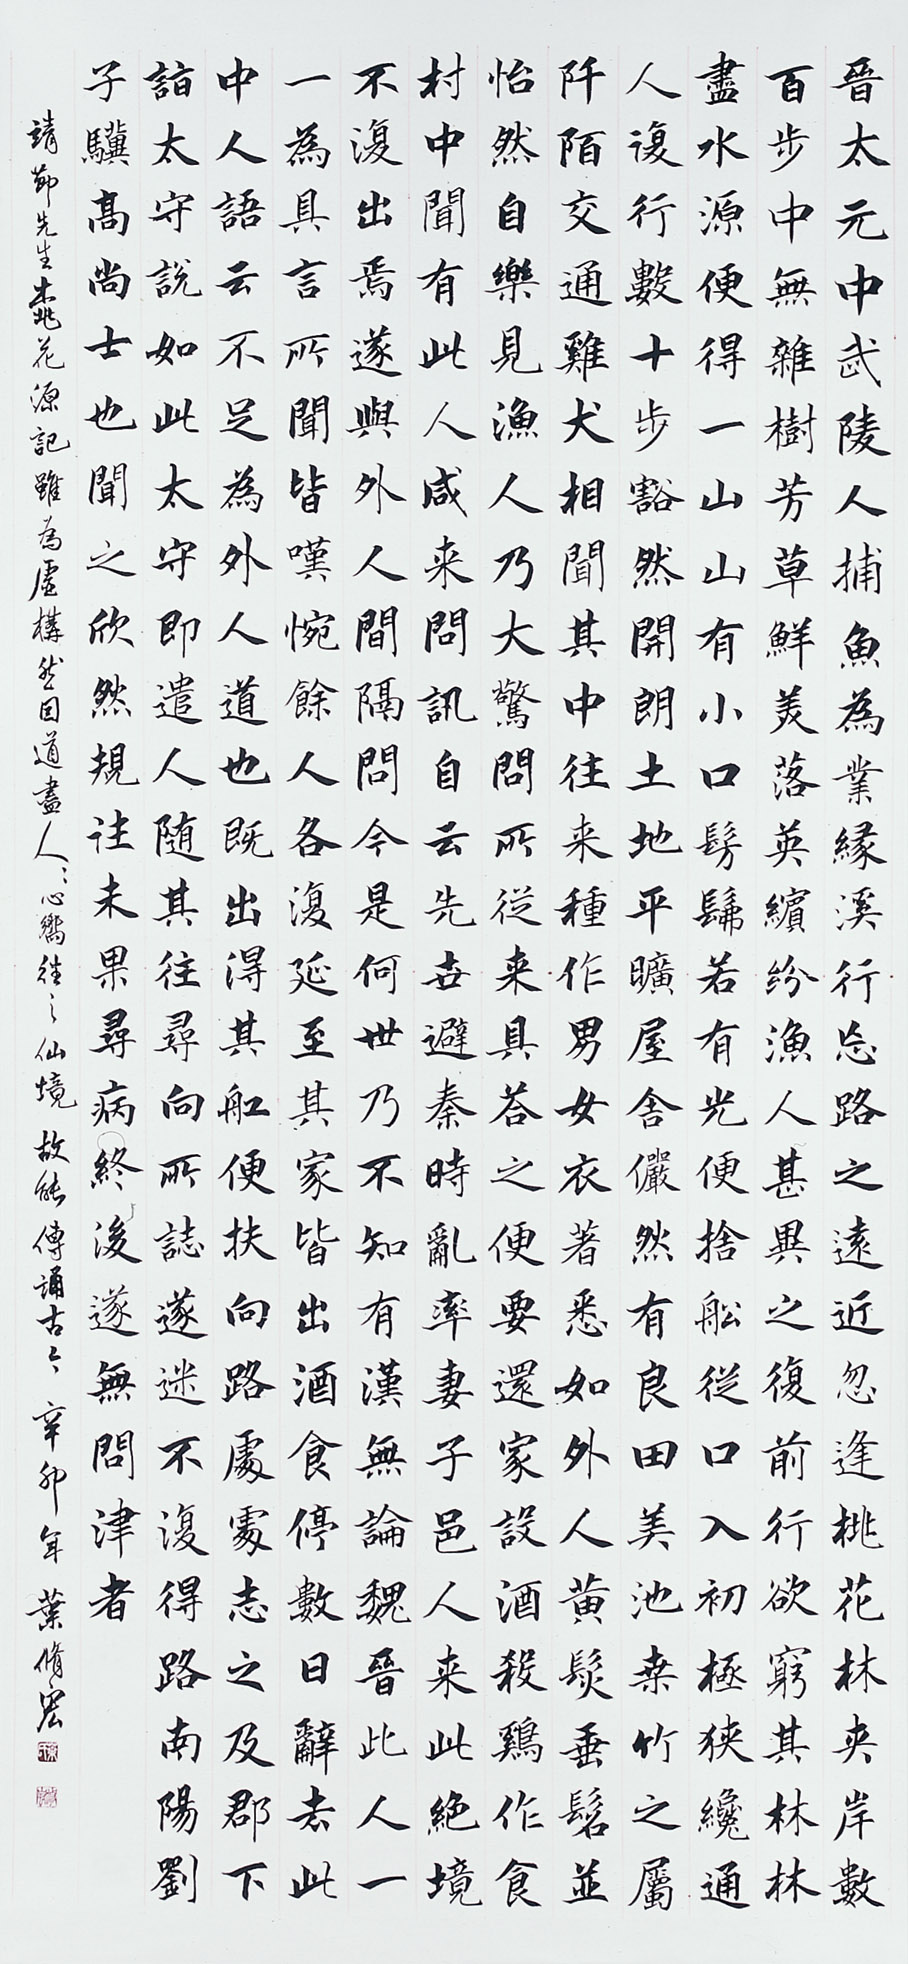 晉太元中武陵人捕魚為業緣溪行忘路之遠近忽逢桃花林夾岸數
百步中無雜樹芳草鮮美落英繽紛漁人甚異之復前行欲窮其林林
盡水源便得一山山有小口髣髴若有光便捨船從口入初極狹纔通
人復行數十步豁然開朗土地平曠屋舍儼然有良田美池桒竹之屬
阡陌交通雞犬相聞其中往来種作男女衣著悉如外人黄髮垂髫並
怡然自樂見漁人乃大驚問所從来具荅之便要還家設酒殺鷄作食
村中聞有此人咸来問訊自云先世避秦時亂率妻子邑人来此絶境
不復出焉遂與外人間隔問今是何世乃不知有漢無論魏晉此人一
一為具言所聞皆嘆惋餘人各復延至其家皆出酒食停數日辭去此
中人語云不足為外人道也既出得其船便扶向路處處志之及郡下
詣太守說如此太守即遣人随其往尋向所誌遂迷不復得路南陽劉
子驥髙尚士也聞之欣然規往未果尋病終後遂無問津者
靖節先生桃花源記雖為虛構然因道盡人々心嚮往之仙境故能傳誦古今辛卯年葉脩宏